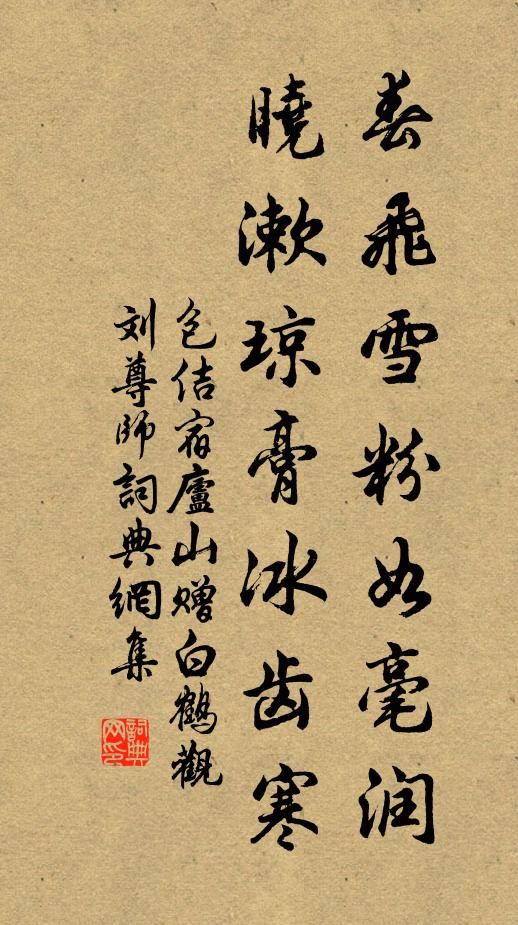 春飛雪粉如毫润
曉漱琼膏冰齿寒
包佶宿廬山赠白鶴觀
刘尊師詞典網集
詞典网印